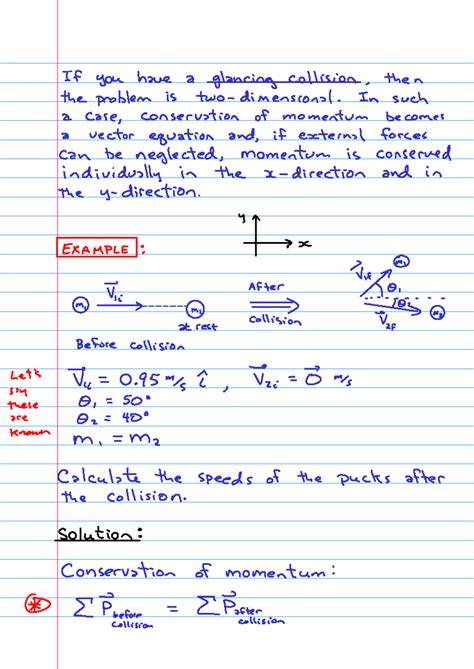 If you have a glancing collision, then
the problem is two-dimensional. In such
a case, conservation of momentum becomes
a vector equation and, if external forces
can be neglected, momentum is conserved
individually in the x-direction and in
the y-direction.
y
x
EXAMPLE :
V⃗1i
m1
m2
at rest
Before collision
After
collision
V⃗1f
m1
θ1
θ2
m2
V⃗2f
Let's
say
these
are
known
V⃗1i = 0.95 m/s î , V⃗2i = 0⃗ m/s
θ1 = 50°
θ2 = 40°
m1 = m2
Calculate the speeds of the pucks after
the collision.
Solution:
Conservation of momentum:
* ΣP⃗before collision = ΣP⃗after collision